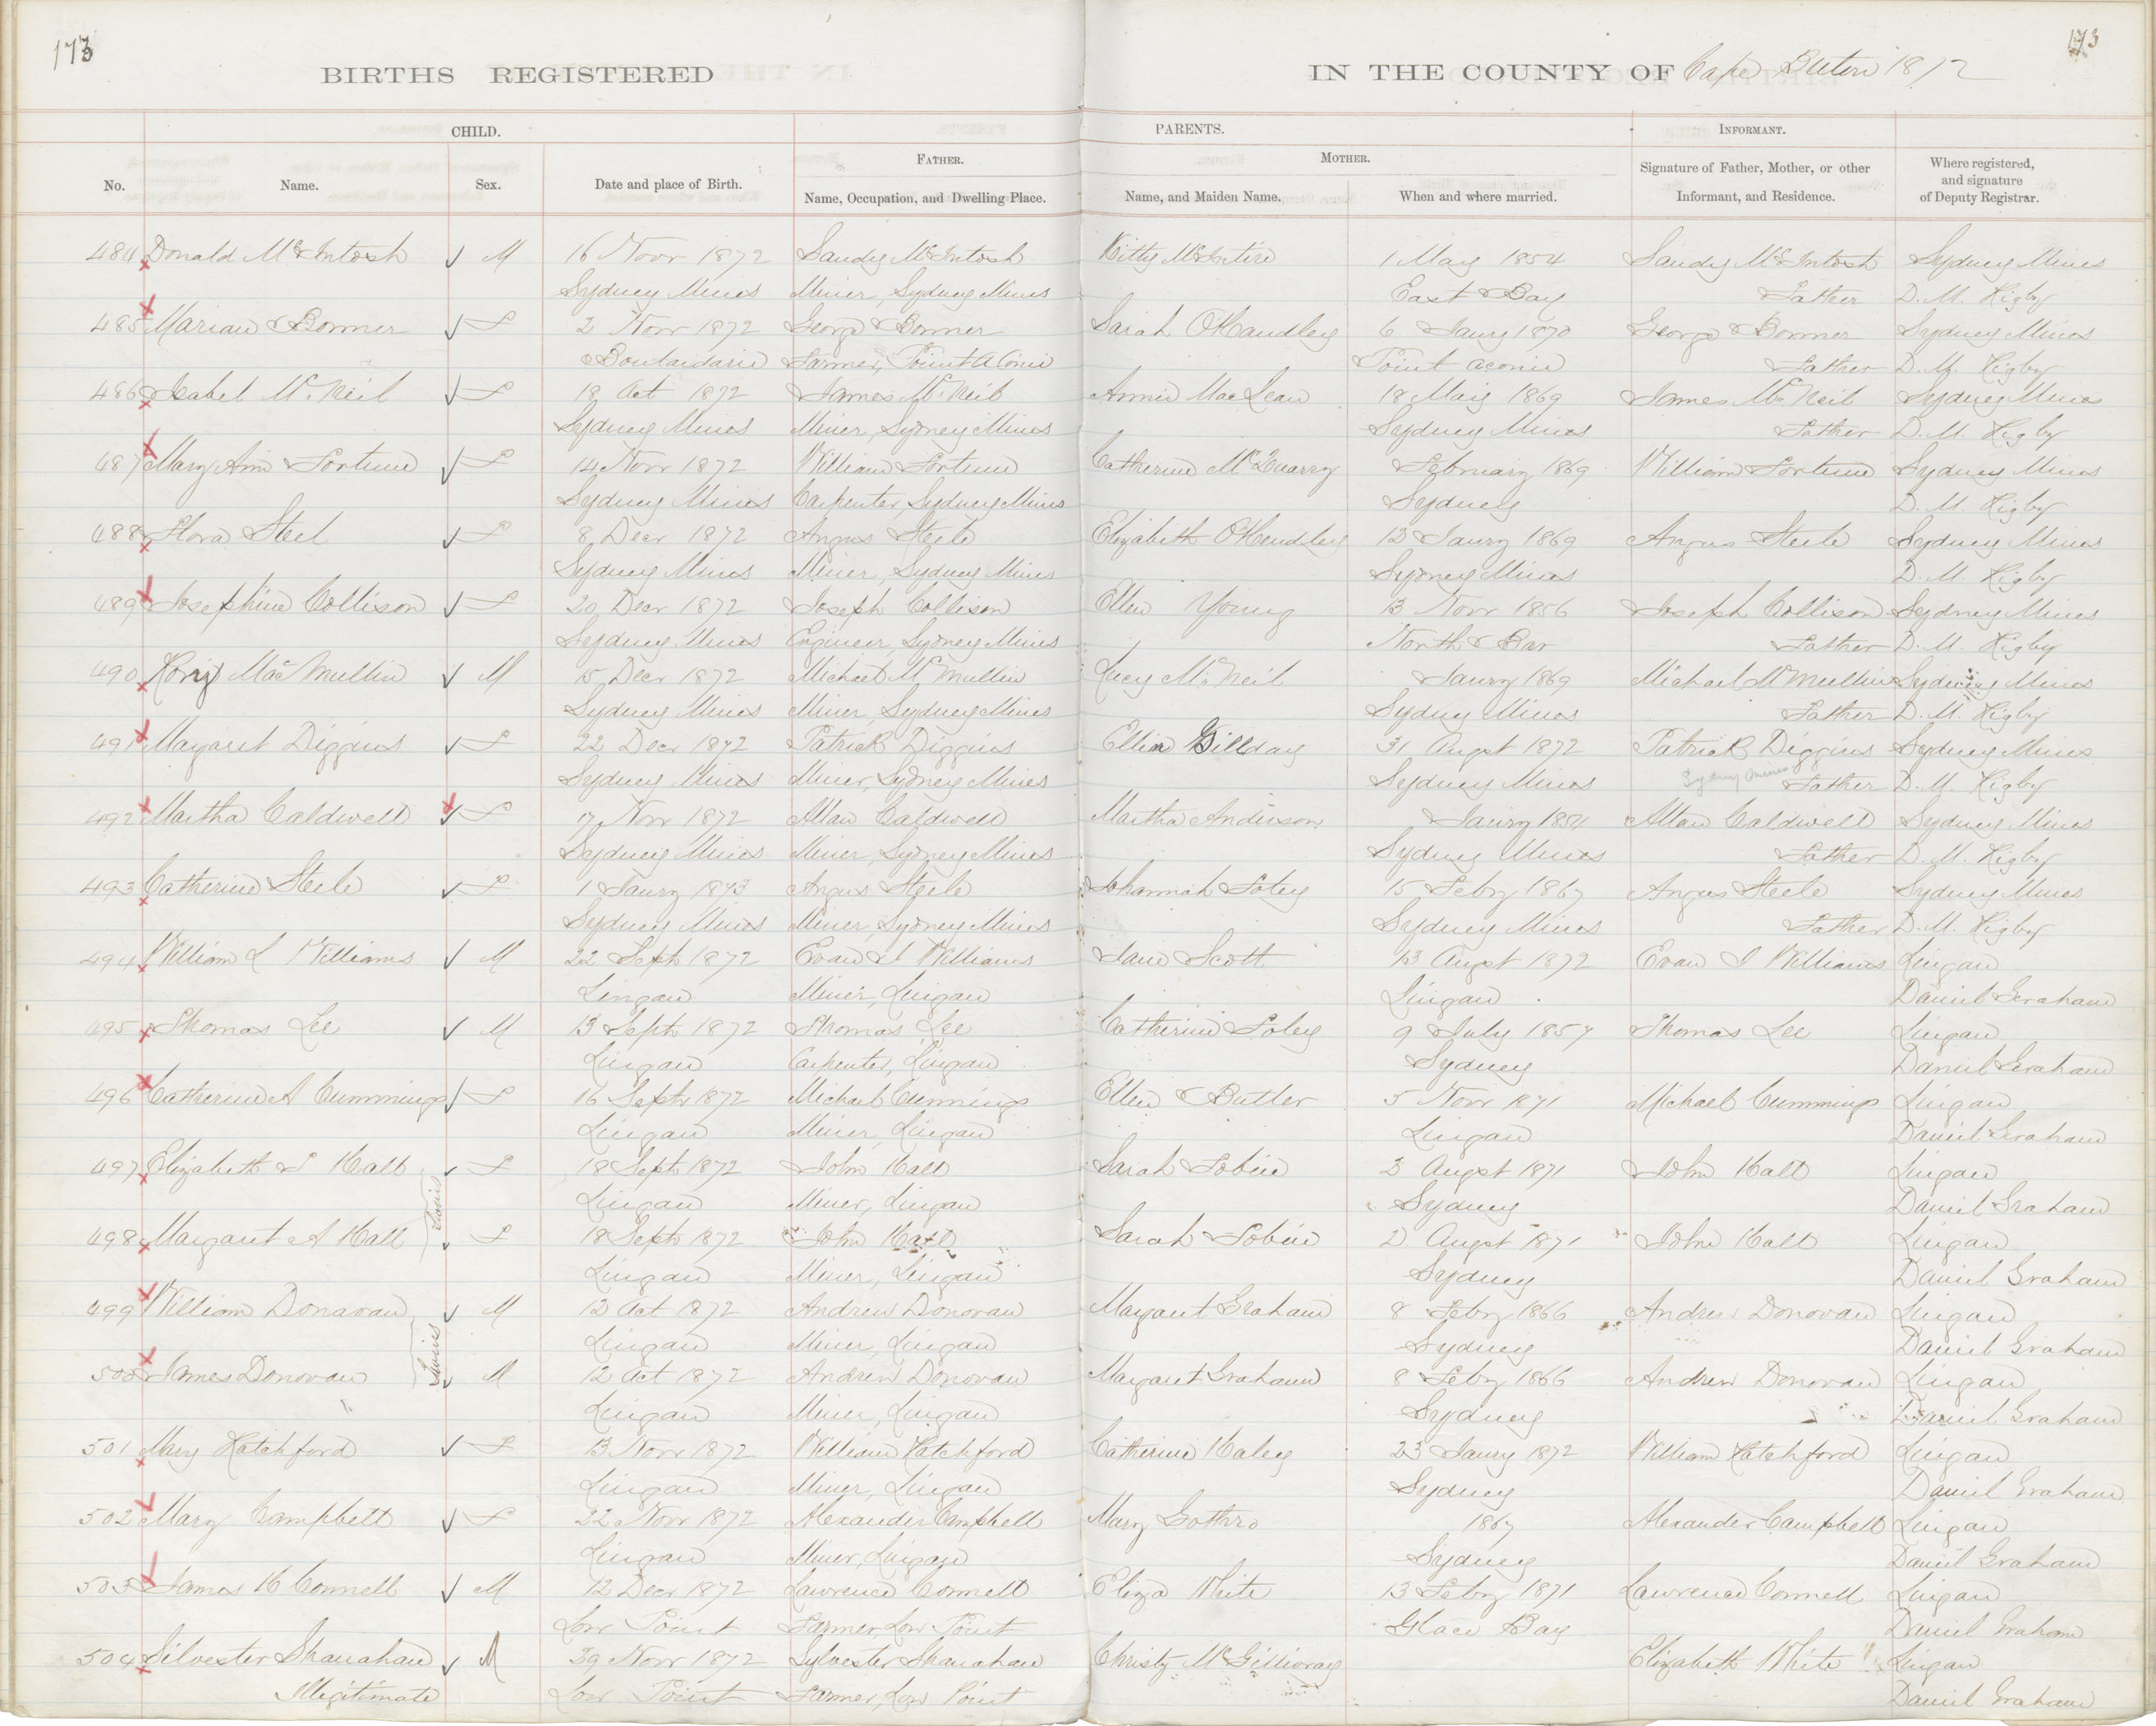 173
173
BIRTHS REGISTERED IN THE COUNTY OF Cape Breton 1872
CHILD. PARENTS. INFORMANT.
FATHER. MOTHER.
No. Name. Sex. Date and place of Birth. Name, Occupation, and Dwelling Place. Name, and Maiden Name. When and where married. Signature of Father, Mother, or other Informant, and Residence. Where registered, and signature of Deputy Registrar.
484 Donald McIntosh M 16 Novr 1872 Sandy McIntosh Kitty McIntire 1 May 1854 Sandy McIntosh Sydney Mines
Sydney Mines Miner, Sydney Mines East Bay Father D. M. Rigby
485 Marian Bonner F 2 Novr 1872 George Bonner Sarah O'Handley 6 Jany 1870 George Bonner Sydney Mines
Boulardarie Farmer, Point Aconie Point Aconie Father D. M. Rigby
486 Isabel McNeil F 18 Oct 1872 James McNeil Annie MacLean 18 May 1869 James McNeil Sydney Mines
Sydney Mines Miner, Sydney Mines Sydney Mines Father D. M. Rigby
487 Mary Ann Fortune F 14 Novr 1872 William Fortune Catherine McQuarry February 1869 William Fortune Sydney Mines
Sydney Mines Carpenter, Sydney Mines Sydney D. M. Rigby
488 Flora Steel F 8 Decr 1872 Angus Steele Elizabeth O'Hendley 12 Jany 1869 Angus Steele Sydney Mines
Sydney Mines Miner, Sydney Mines Sydney Mines D. M. Rigby
489 Josephine Collison F 20 Decr 1872 Joseph Collison Ellen Young 13 Novr 1856 Joseph Collison Sydney Mines
Sydney Mines Engineer, Sydney Mines North Bar Father D. M. Rigby
490 Rory MacMullin M 15 Decr 1872 Michael McMullin Lucy McNeil Jany 1869 Michael McMullin Sydney Mines
Sydney Mines Miner, Sydney Mines Sydney Mines Father D. M. Rigby
491 Margaret Diggins F 22 Decr 1872 Patrick Diggins Ellen Gillday 31 Augst 1872 Patrick Diggins Sydney Mines
Sydney Mines Miner, Sydney Mines Sydney Mines Sydney Mines Father D. M. Rigby
492 Martha Caldwell F 17 Novr 1872 Allan Caldwell Martha Anderson Jany 1854 Allan Caldwell Sydney Mines
Sydney Mines Miner, Sydney Mines Sydney Mines Father D. M. Rigby
493 Catherine Steele F 1 Jany 1873 Angus Steele Johannah Foley 15 Feby 1867 Angus Steele Sydney Mines
Sydney Mines Miner, Sydney Mines Sydney Mines Father D. M. Rigby
494 William L Williams M 22 Sept 1872 Evan I Williams Jane Scott 13 Augst 1872 Evan I Williams Lingan
Lingan Miner, Lingan Lingan Daniel Graham
495 Thomas Lee M 13 Sept 1872 Thomas Lee Catherine Foley 9 July 1857 Thomas Lee Lingan
Lingan Carpenter, Lingan Sydney Daniel Graham
496 Catherine A Cummings F 16 Sept 1872 Michael Cummings Ellen Butler 5 Novr 1871 Michael Cummings Lingan
Lingan Miner, Lingan Lingan Daniel Graham
497 Elizabeth S Hall F 18 Sept 1872 John Hall Sarah Tobin 2 Augst 1871 John Hall Lingan
Twins Lingan Miner, Lingan Sydney Daniel Graham
498 Margaret A Hall F 18 Sept 1872 John Hall Sarah Tobin 2 Augst 1871 John Hall Lingan
Lingan Miner, Lingan Sydney Daniel Graham
499 William Donavan M 12 Oct 1872 Andrew Donovan Margaret Graham 8 Feby 1866 Andrew Donovan Lingan
Twins Lingan Miner, Lingan Sydney Daniel Graham
500 James Donovan M 12 Oct 1872 Andrew Donovan Margaret Graham 8 Feby 1866 Andrew Donovan Lingan
Lingan Miner, Lingan Sydney Daniel Graham
501 Mary Hatchford F 13 Novr 1872 William Hatchford Catherine Haley 23 Jany 1872 William Hatchford Lingan
Lingan Miner, Lingan Sydney Daniel Graham
502 Mary Campbell F 22 Novr 1872 Alexander Campbell Mary Gothro 1867 Alexander Campbell Lingan
Lingan Miner, Lingan Sydney Daniel Graham
503 James H Connell M 12 Decr 1872 Lawrence Connell Eliza White 13 Feby 1871 Lawrence Connell Lingan
Low Point Farmer, Low Point Glace Bay Daniel Graham
504 Silvester Shanahan M 29 Novr 1872 Sylvester Shanahan Christy McGillivray Elizabeth White Lingan
Illegitimate Low Point Farmer, Low Point Daniel Graham